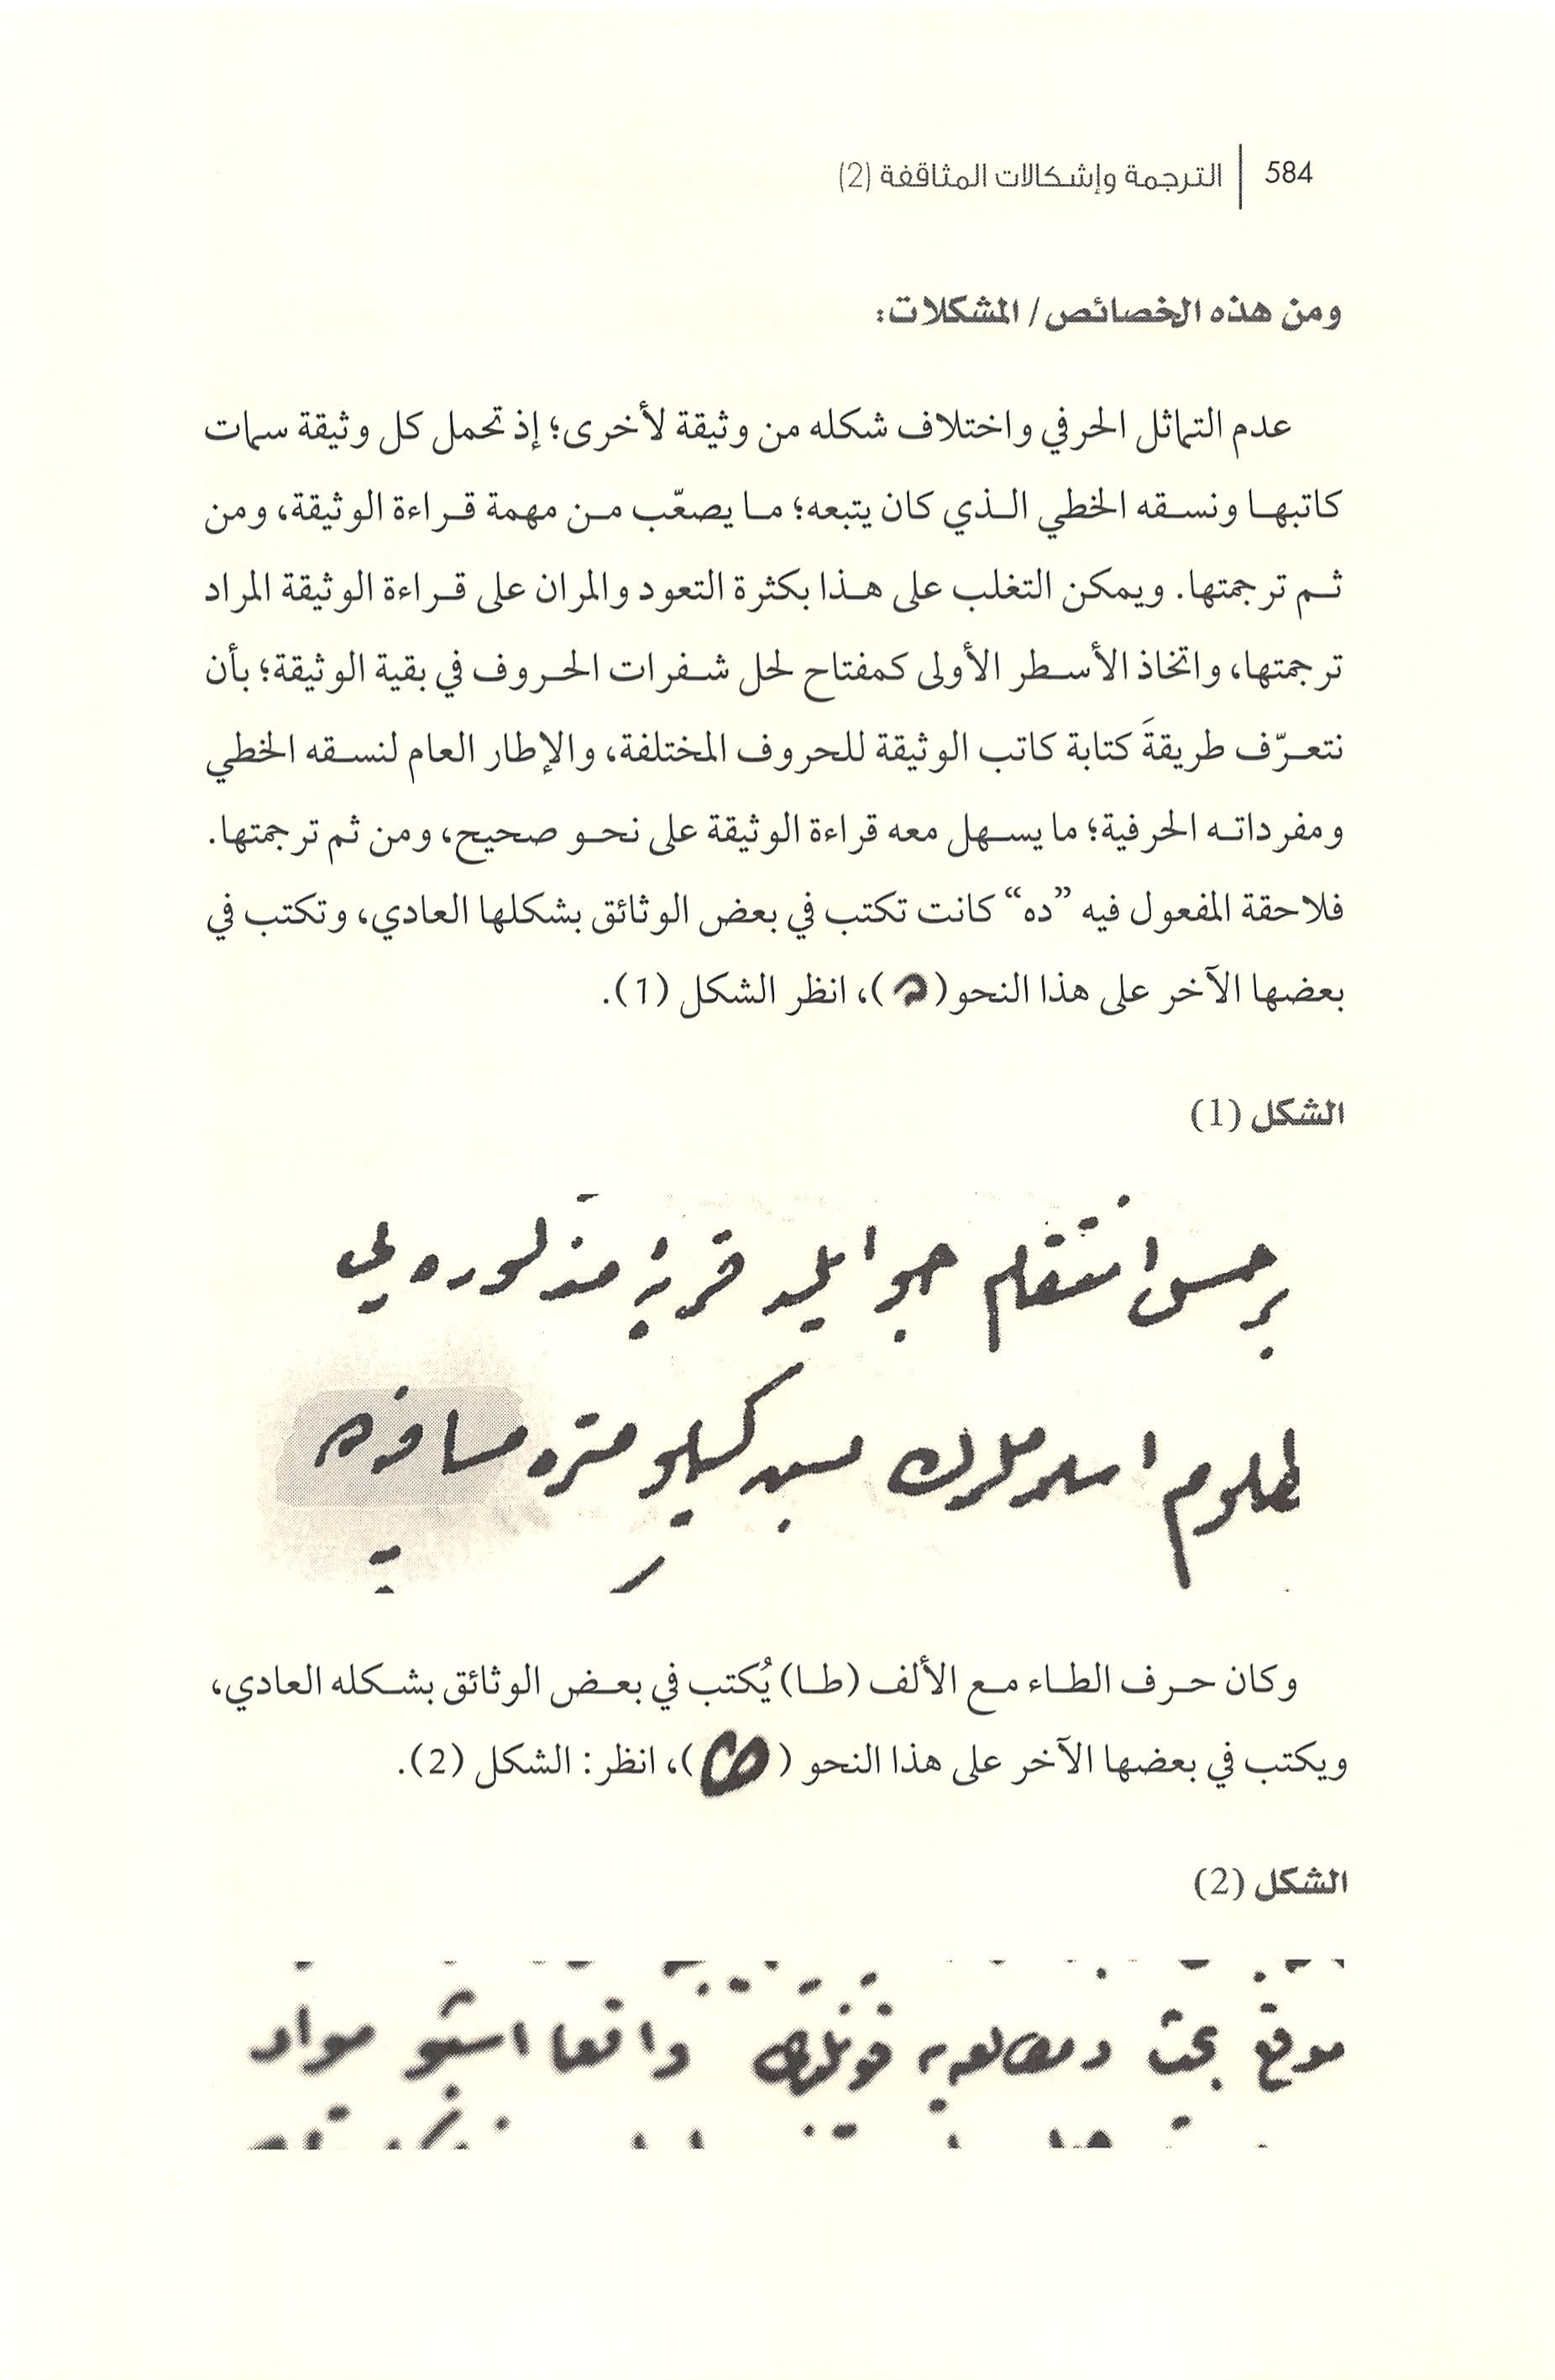 584 | الترجمة وإشكالات المثاقفة (2)
ومن هذه الخصائص/ المشكلات:
عدم التماثل الحرفي واختلاف شكله من وثيقة لأخرى؛ إذ تحمل كل وثيقة سمات
كاتبها ونسقه الخطي الذي كان يتبعه؛ ما يصعّب من مهمة قراءة الوثيقة، ومن
ثم ترجمتها. ويمكن التغلب على هذا بكثرة التعود والمران على قراءة الوثيقة المراد
ترجمتها، واتخاذ الأسطر الأولى كمفتاح لحل شفرات الحروف في بقية الوثيقة؛ بأن
نتعرّف طريقةَ كتابة كاتب الوثيقة للحروف المختلفة، والإطار العام لنسقه الخطي
ومفرداته الحرفية؛ ما يسهل معه قراءة الوثيقة على نحو صحيح، ومن ثم ترجمتها.
فلاحقة المفعول فيه ”ده“ كانت تكتب في بعض الوثائق بشكلها العادي، وتكتب في
بعضها الآخر على هذا النحو ( )، انظر الشكل (1).
الشكل (1)
قرية مذكوره
كيلومتره
وكان حرف الطاء مع الألف (طا) يُكتب في بعض الوثائق بشكله العادي،
ويكتب في بعضها الآخر على هذا النحو ( )، انظر: الشكل (2).
الشكل (2)
موقع بحث واقعا اشبو مواد